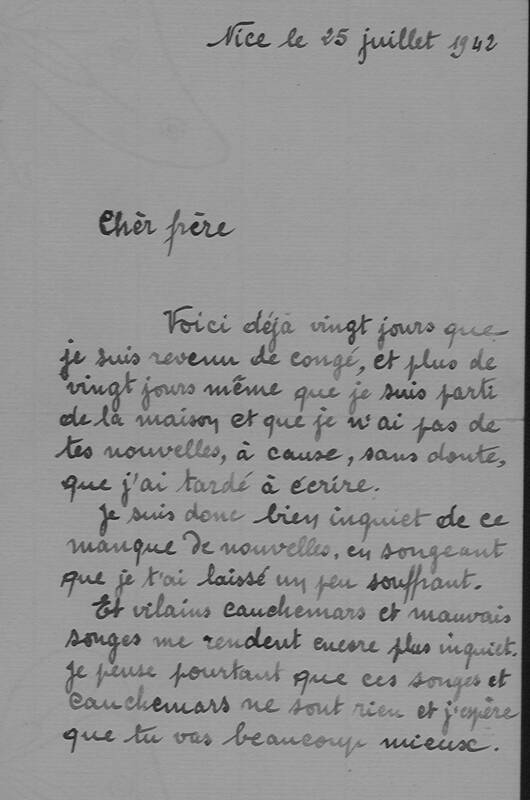 Nice le 25 juillet 1942
Chèr frère
Voici déjà vingt jours que
je suis revenu de congé, et plus de
vingt jours même que je suis parti
de la maison et que je n'ai pas de
tes nouvelles, à cause, sans doute,
que j'ai tardé à écrire.
Je suis donc bien inquiet de ce
manque de nouvelles, en songeant
que je t'ai laissé un peu souffrant.
Et vilains cauchemars et mauvais
songes me rendent encore plus inquiet.
Je pense pourtant que ces songes et
cauchemars ne sont rien et j'espère
que tu vas beaucoup mieux.